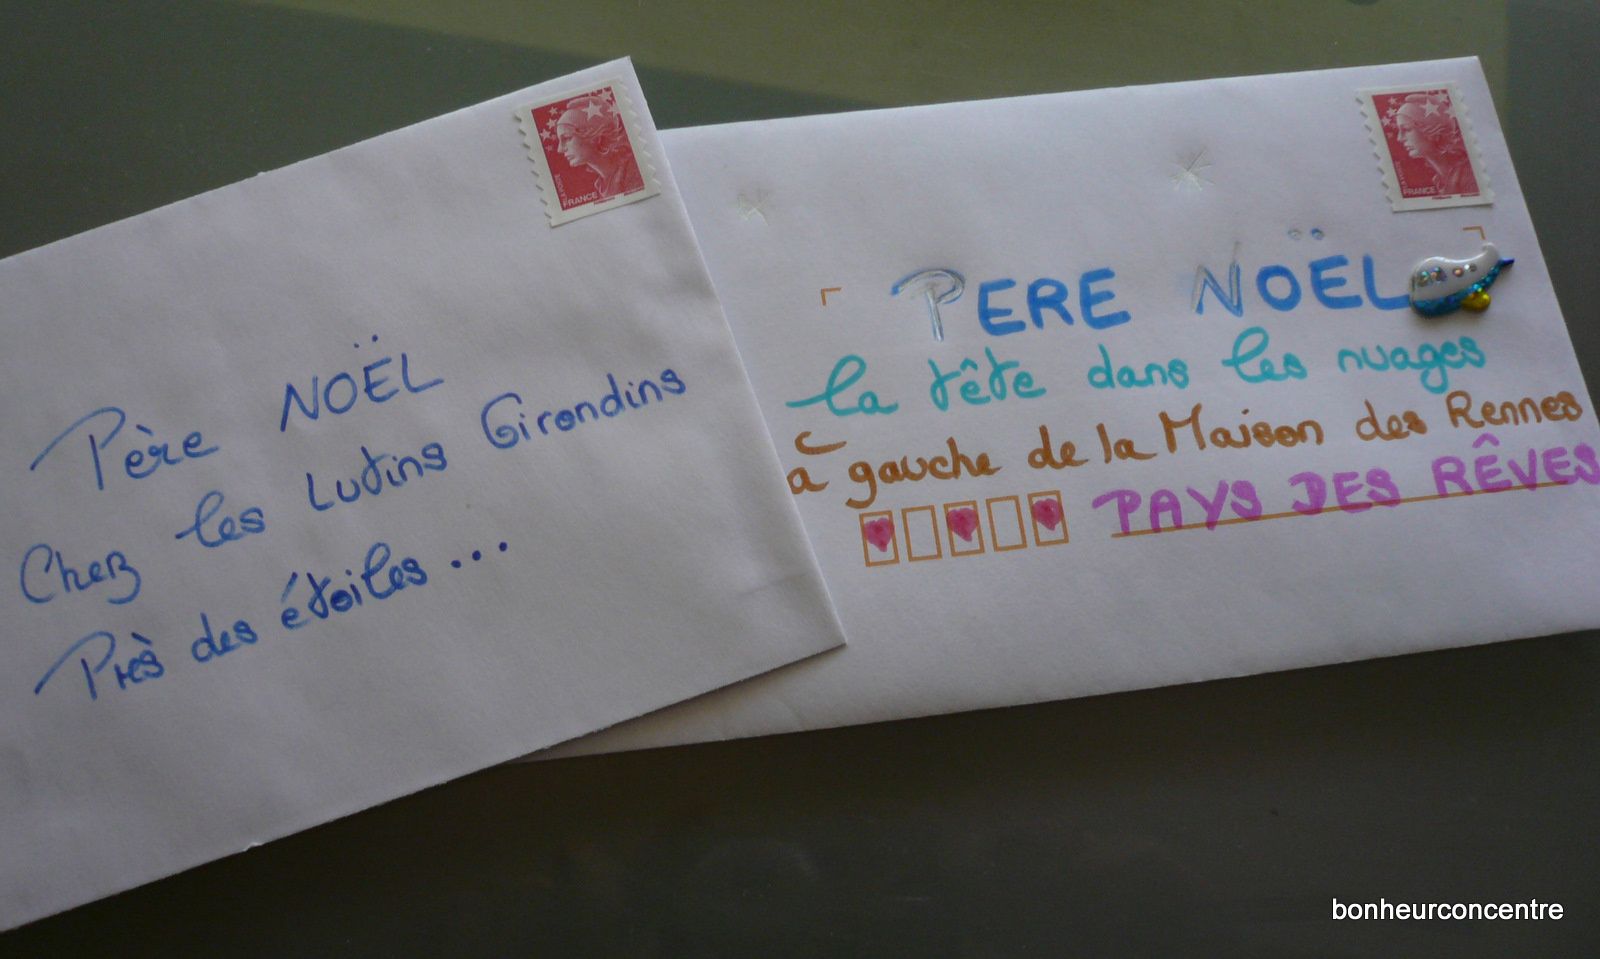 FRANCE
Père NOËL
Chez les Lutins Girondins
Près des étoiles...
FRANCE
PERE NOËL
la tête dans les nuages
à gauche de la Maison des Rennes
PAYS DES RÊVES
bonheurconcentre